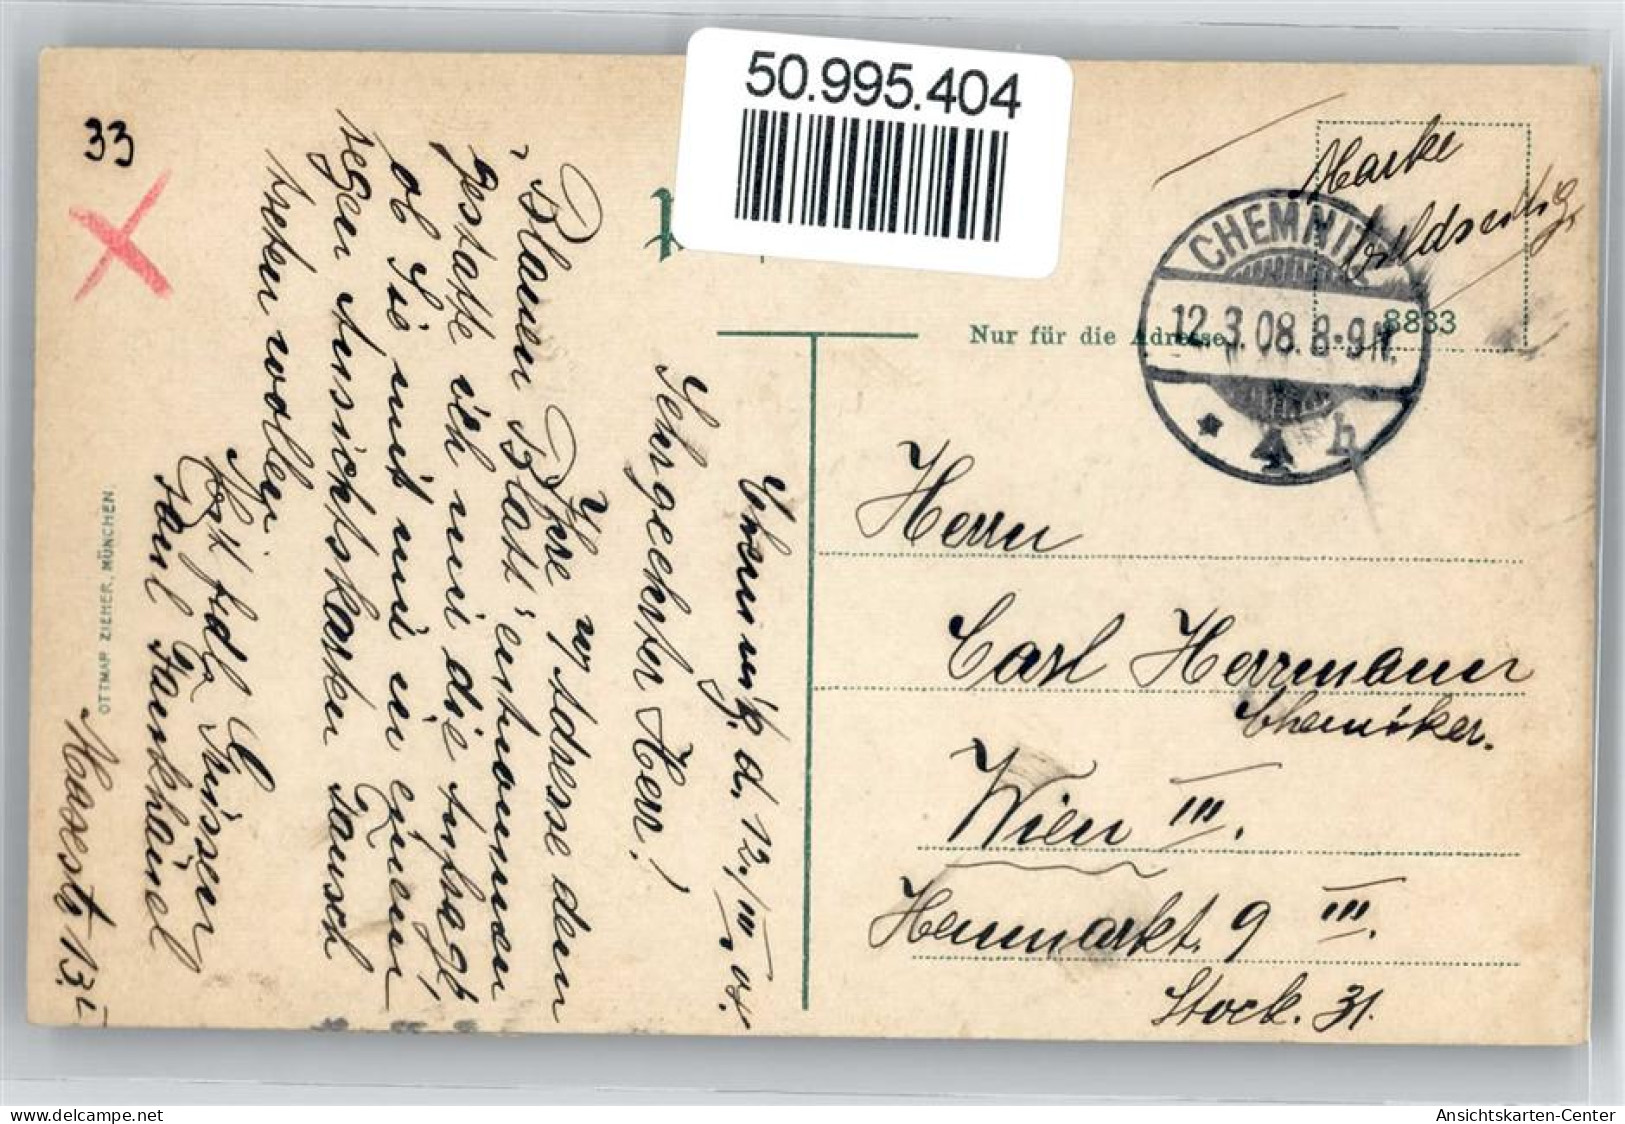 50.995.404
33
Marke
bildseitig
CHEMNITZ
12.3.08.8-9N.
* 4 h
Nur für die Adresse
8833
Herrn
Carl Herrmann
Chemiker.
Wien III.
Heumarkt. 9 III.
Stock. 31.
Chemnitz, d. 12./III. 08.
Sehrgeehrter Herr!
Ihre w. Adresse dem
„Blauen Blatt“ entnommen
gestatte ich mir die Anfrage,
ob Sie mit mir in einen
regen Ansichtskarten Tausch
treten wollen.
Mit frdl. Grüssen
Paul Fankhänel
13, I
OTTMAR ZIEHER, MÜNCHEN.
Ansichtskarten-Center